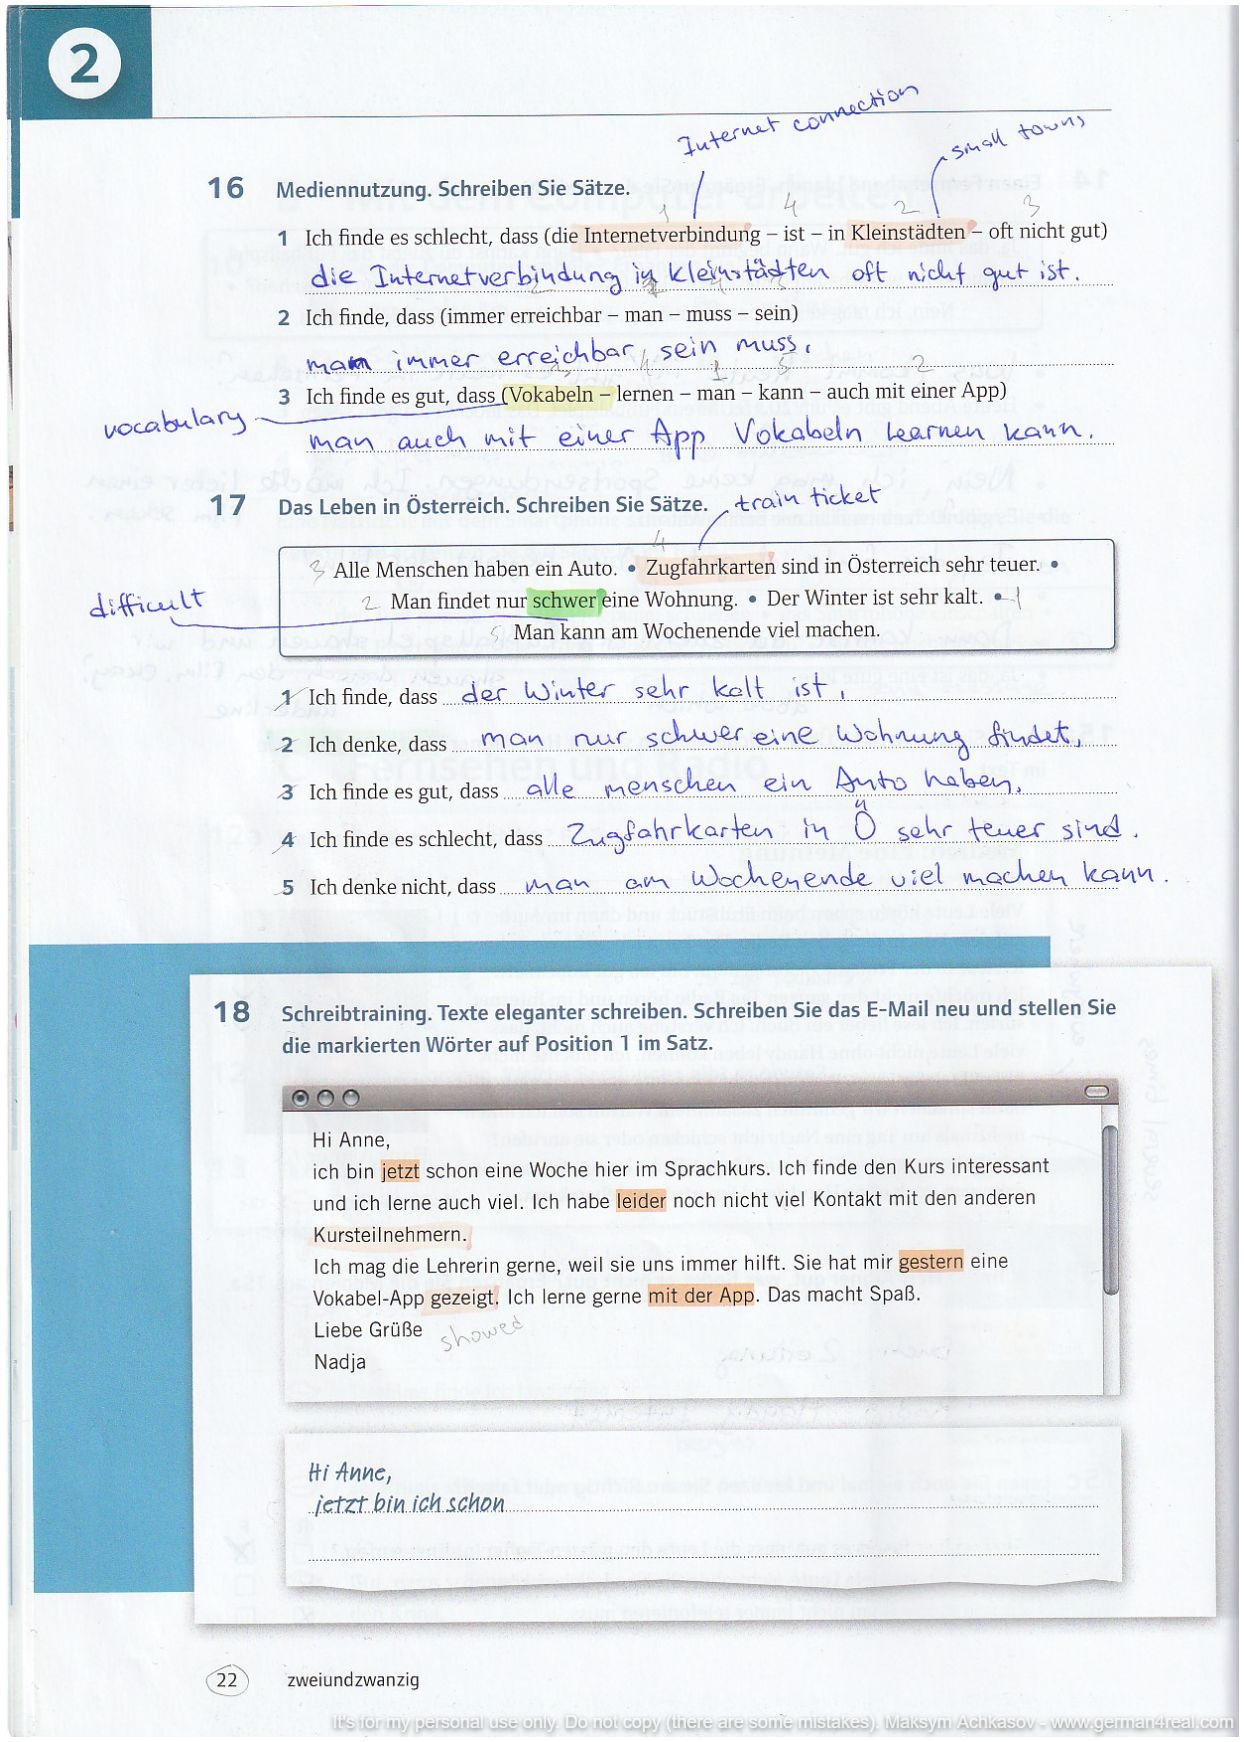 2
Internet connection
small towns
16 Mediennutzung. Schreiben Sie Sätze.
1 4 2 3
1 Ich finde es schlecht, dass (die Internetverbindung – ist – in Kleinstädten – oft nicht gut)
die Internetverbindung in Kleinstädten oft nicht gut ist.
2 Ich finde, dass (immer erreichbar – man – muss – sein)
man immer erreichbar sein muss.
4 1 5 2
3 Ich finde es gut, dass (Vokabeln – lernen – man – kann – auch mit einer App)
vocabulary
man auch mit einer App Vokabeln lernen kann.
17 Das Leben in Österreich. Schreiben Sie Sätze.
train ticket
4
3 Alle Menschen haben ein Auto. • Zugfahrkarten sind in Österreich sehr teuer. •
difficult
2 Man findet nur schwer eine Wohnung. • Der Winter ist sehr kalt. • 1
5 Man kann am Wochenende viel machen.
1 Ich finde, dass der Winter sehr kalt ist.
2 Ich denke, dass man nur schwer eine Wohnung findet.
3 Ich finde es gut, dass alle menschen ein Auto haben.
4 Ich finde es schlecht, dass Zugfahrkarten in Ö sehr teuer sind.
5 Ich denke nicht, dass man am Wochenende viel machen kann.
18 Schreibtraining. Texte eleganter schreiben. Schreiben Sie das E-Mail neu und stellen Sie
die markierten Wörter auf Position 1 im Satz.
Hi Anne,
ich bin jetzt schon eine Woche hier im Sprachkurs. Ich finde den Kurs interessant
und ich lerne auch viel. Ich habe leider noch nicht viel Kontakt mit den anderen
Kursteilnehmern.
Ich mag die Lehrerin gerne, weil sie uns immer hilft. Sie hat mir gestern eine
Vokabel-App gezeigt. Ich lerne gerne mit der App. Das macht Spaß.
Liebe Grüße
showed
Nadja
Hi Anne,
jetzt bin ich schon
22 zweiundzwanzig
It's for my personal use only. Do not copy (there are some mistakes). Maksym Achkasov - www.german4real.com